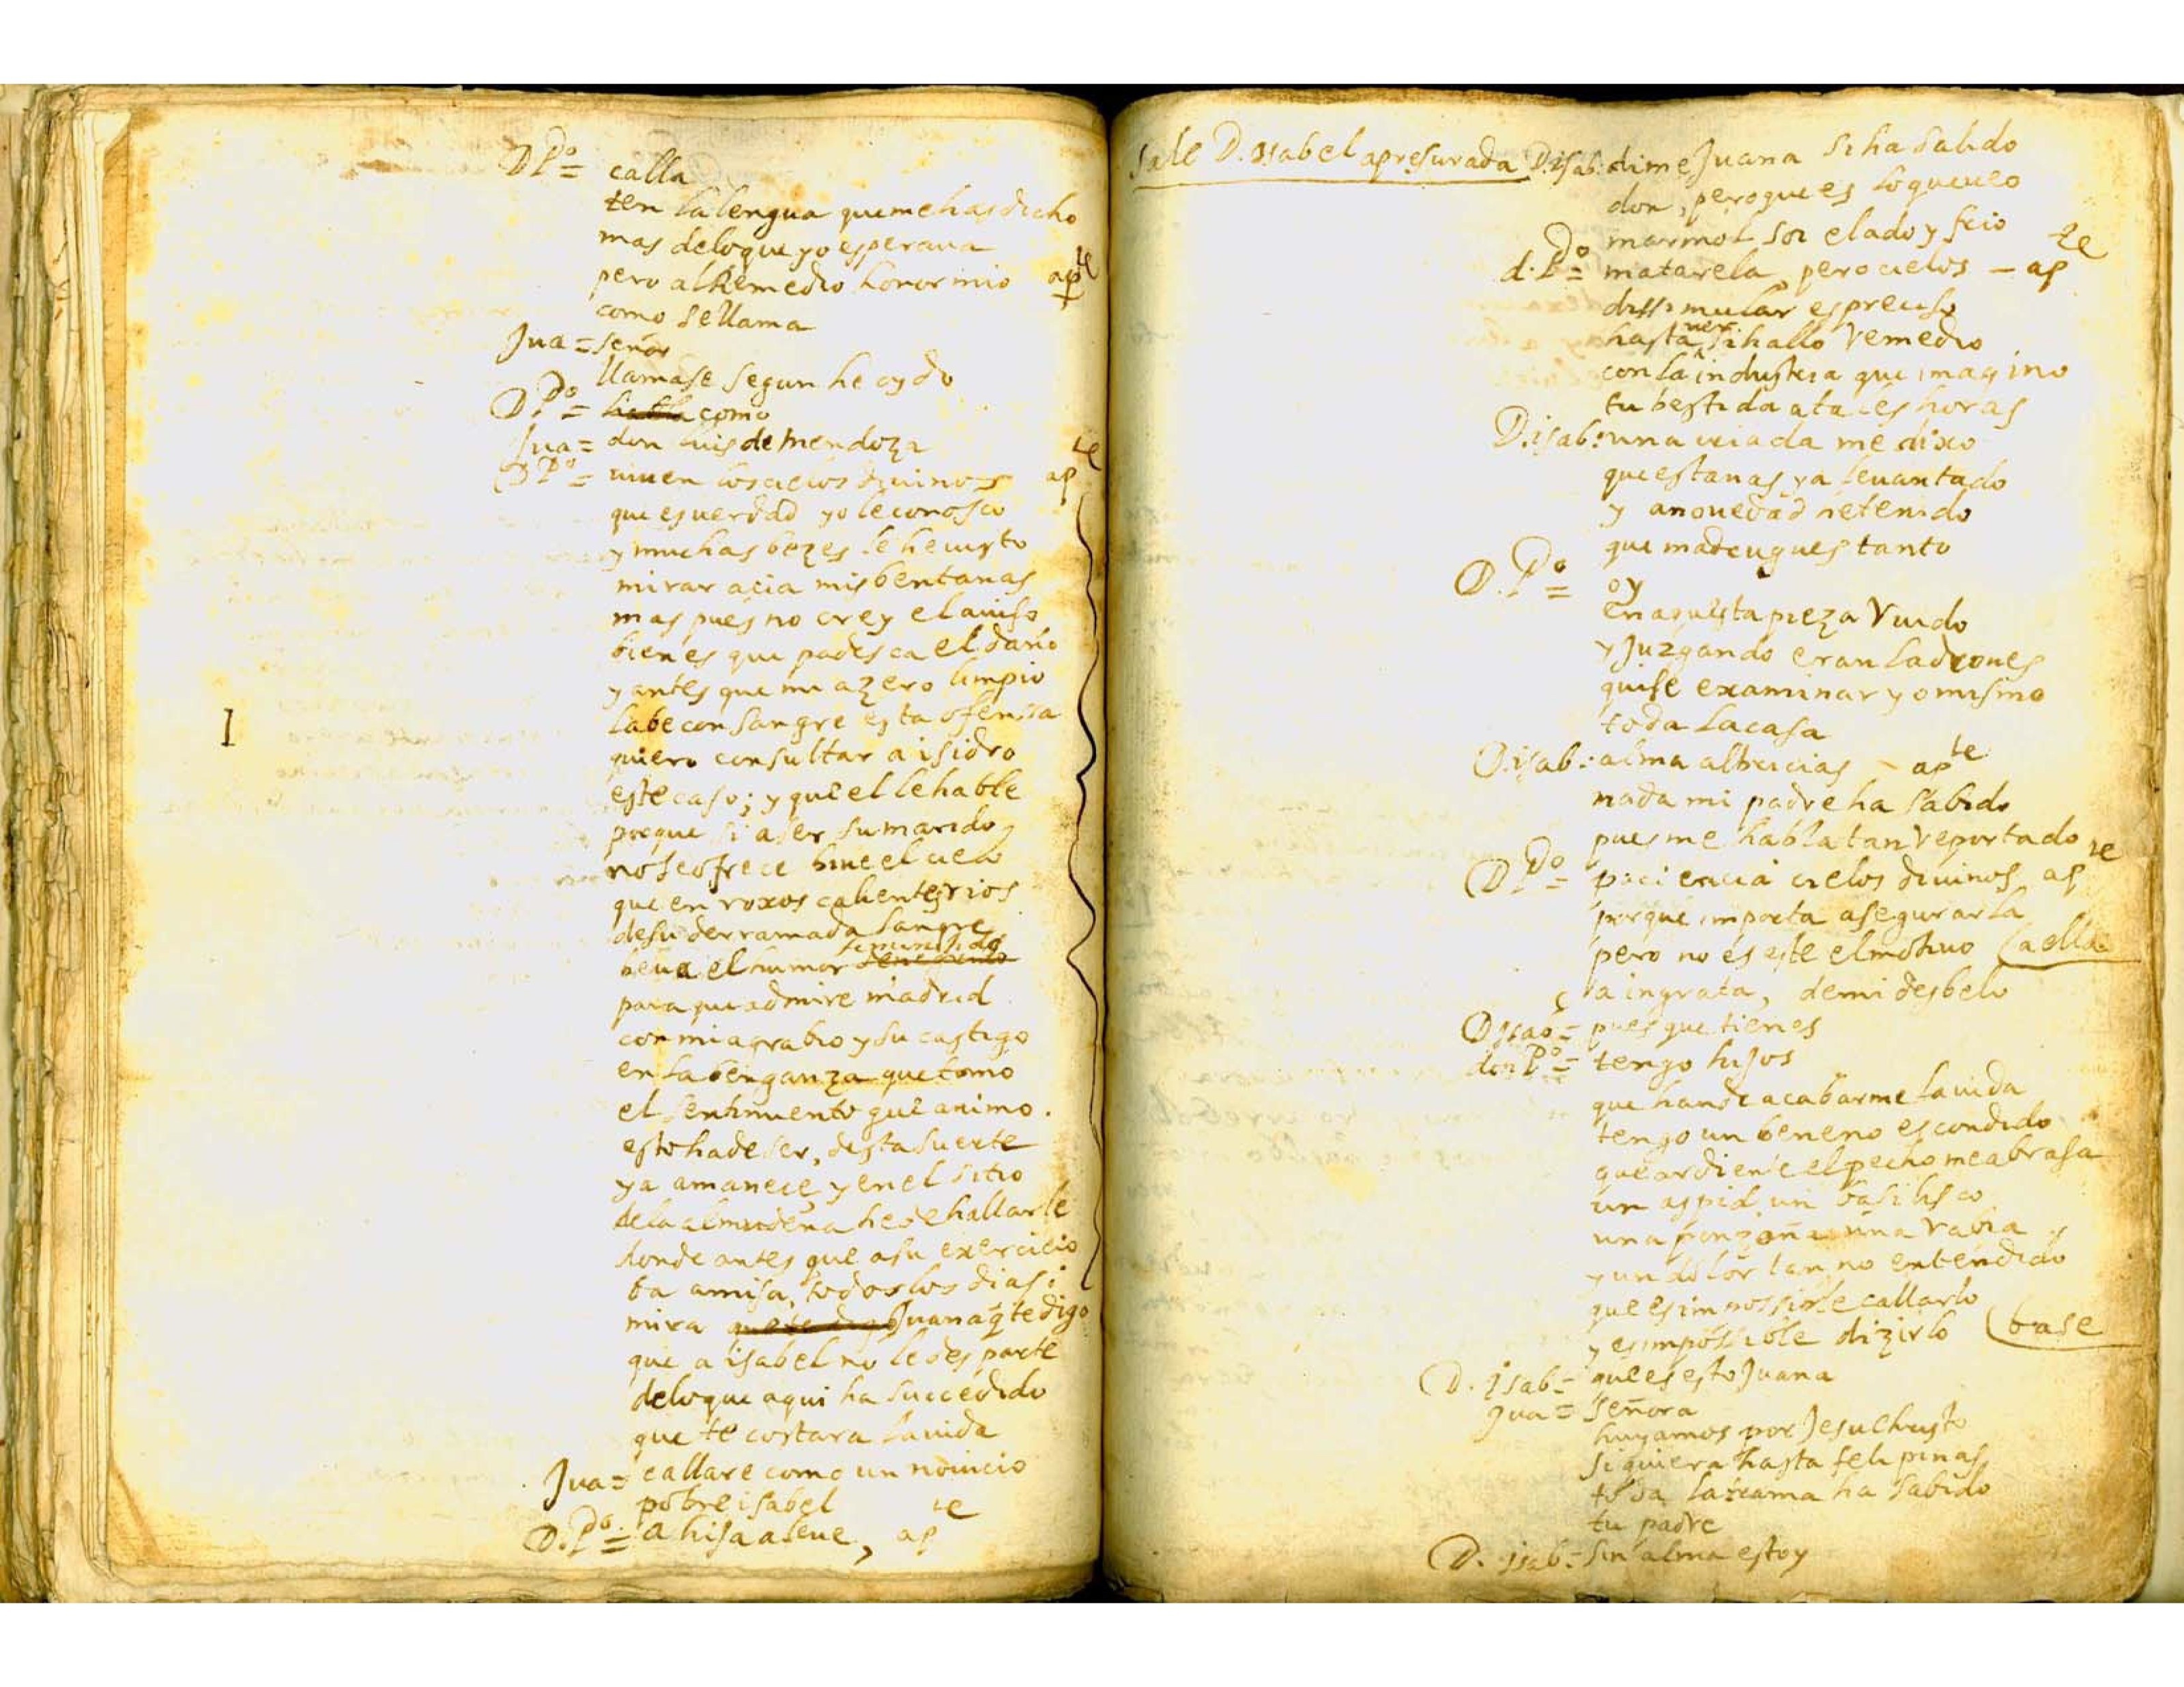 D Po = calla
ten la lengua que me has dicho
mas de lo que yo esperaua
pero al Remedio honor mio apte
como se llama
Jua = señor
llamase segun he oydo
D. Po = habla como
Jua = don luis de mendoza
D Po = uiuen los cielos diuinos apte
que es uerdad yo le conosco
y muchas bezes le he uisto
mirar acia mis bentanas
mas pues no crey el auiso
bien es que padesca el daño
y antes que mi azero limpio
labe con sangre esta ofensa
I
quiero consultar a isidro
este caso; y que el le hable
porque si a ser su marido
no se ofrece uiue el cielo
que en roxos calientes rios
de su derramada sangre
beua el humor
para que admire madrid
con mi agrabio y su castigo
en la benganza que tomo
el sentimiento que animo.
esto ha de ser, desta suerte
ya amanece, y en el sitio
de la almudena he de hallarle
donde antes que a su exercicio
ba a misa, todos los dias;
mira que te digo Juana q̃ te digo
que a isabel no le des parte
de lo que aqui ha succedido
que te costara la uida
Jua = callare como un nouicio
pobre isabel
D. Po = a hija aleue, apte
Sale D. Isabel apresurada D. isab: dime Juana si ha salido
don, pero que es lo que ueo
marmol soi elado y frio
d. Po = matarela, pero cielos – apte
dissimular es preciso
hasta uer si hallo Remedio
con la industria que imagino
tu bestida a tales horas
D. isab: una criada me dixo
que estauas ya leuantado
y a nouedad he tenido
que madrugues tanto
D. Po = oy
en aquesta pieza Ruido
y Juzgando eran ladrones
quise examinar yo mismo
toda la casa
D. isab: alma albricias – apte
nada mi padre ha sabido
pues me habla tan Reportado
D Po = paciencia cielos diuinos apte
porque importa asegurarla
pero no es este el motiuo (a ella
a ingrata, de mi desbelo
D isab = pues que tienes
don Po = tengo hijos
que han de acabarme la uida
tengo un beneno escondido
que ardiente el pecho me abrasa
un aspid, un basilisco
una ponzoña una Rabia
y un dolor tan no entendido
que es impossible callarlo
y es impossible dizirlo (base
D. Isab = que es esto Juana
Jua = señora
huyamos por Jesuchristo
siquiera hasta felipinas
toda la trama ha sabido
tu padre
D. isab = sin alma estoy